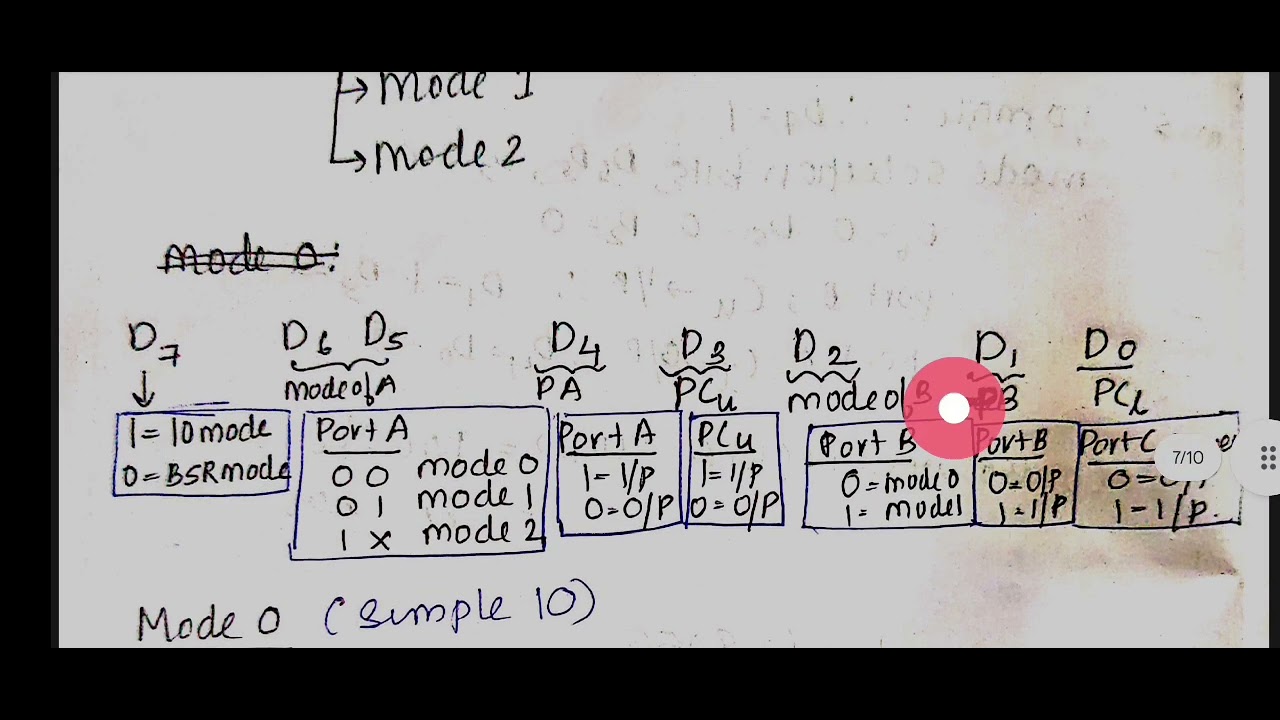 → mode 1
→ mode 2
mode 0:
D7 D6 D5 D4 D3 D2 D1 D0
mode of A PA PCu mode of B PB PCL
1 = 10 mode
0 = BSR mode
Port A
0 0 mode 0
0 1 mode 1
1 x mode 2
Port A
1 = 1/P
0 = 0/P
PCu
1 = 1/P
0 = 0/P
Port B
0 = mode 0
1 = mode 1
Port B
0 = 0/P
1 = 1/P
Port C
0 =
1 - 1/P.
7/10
Mode 0 (Simple 10)